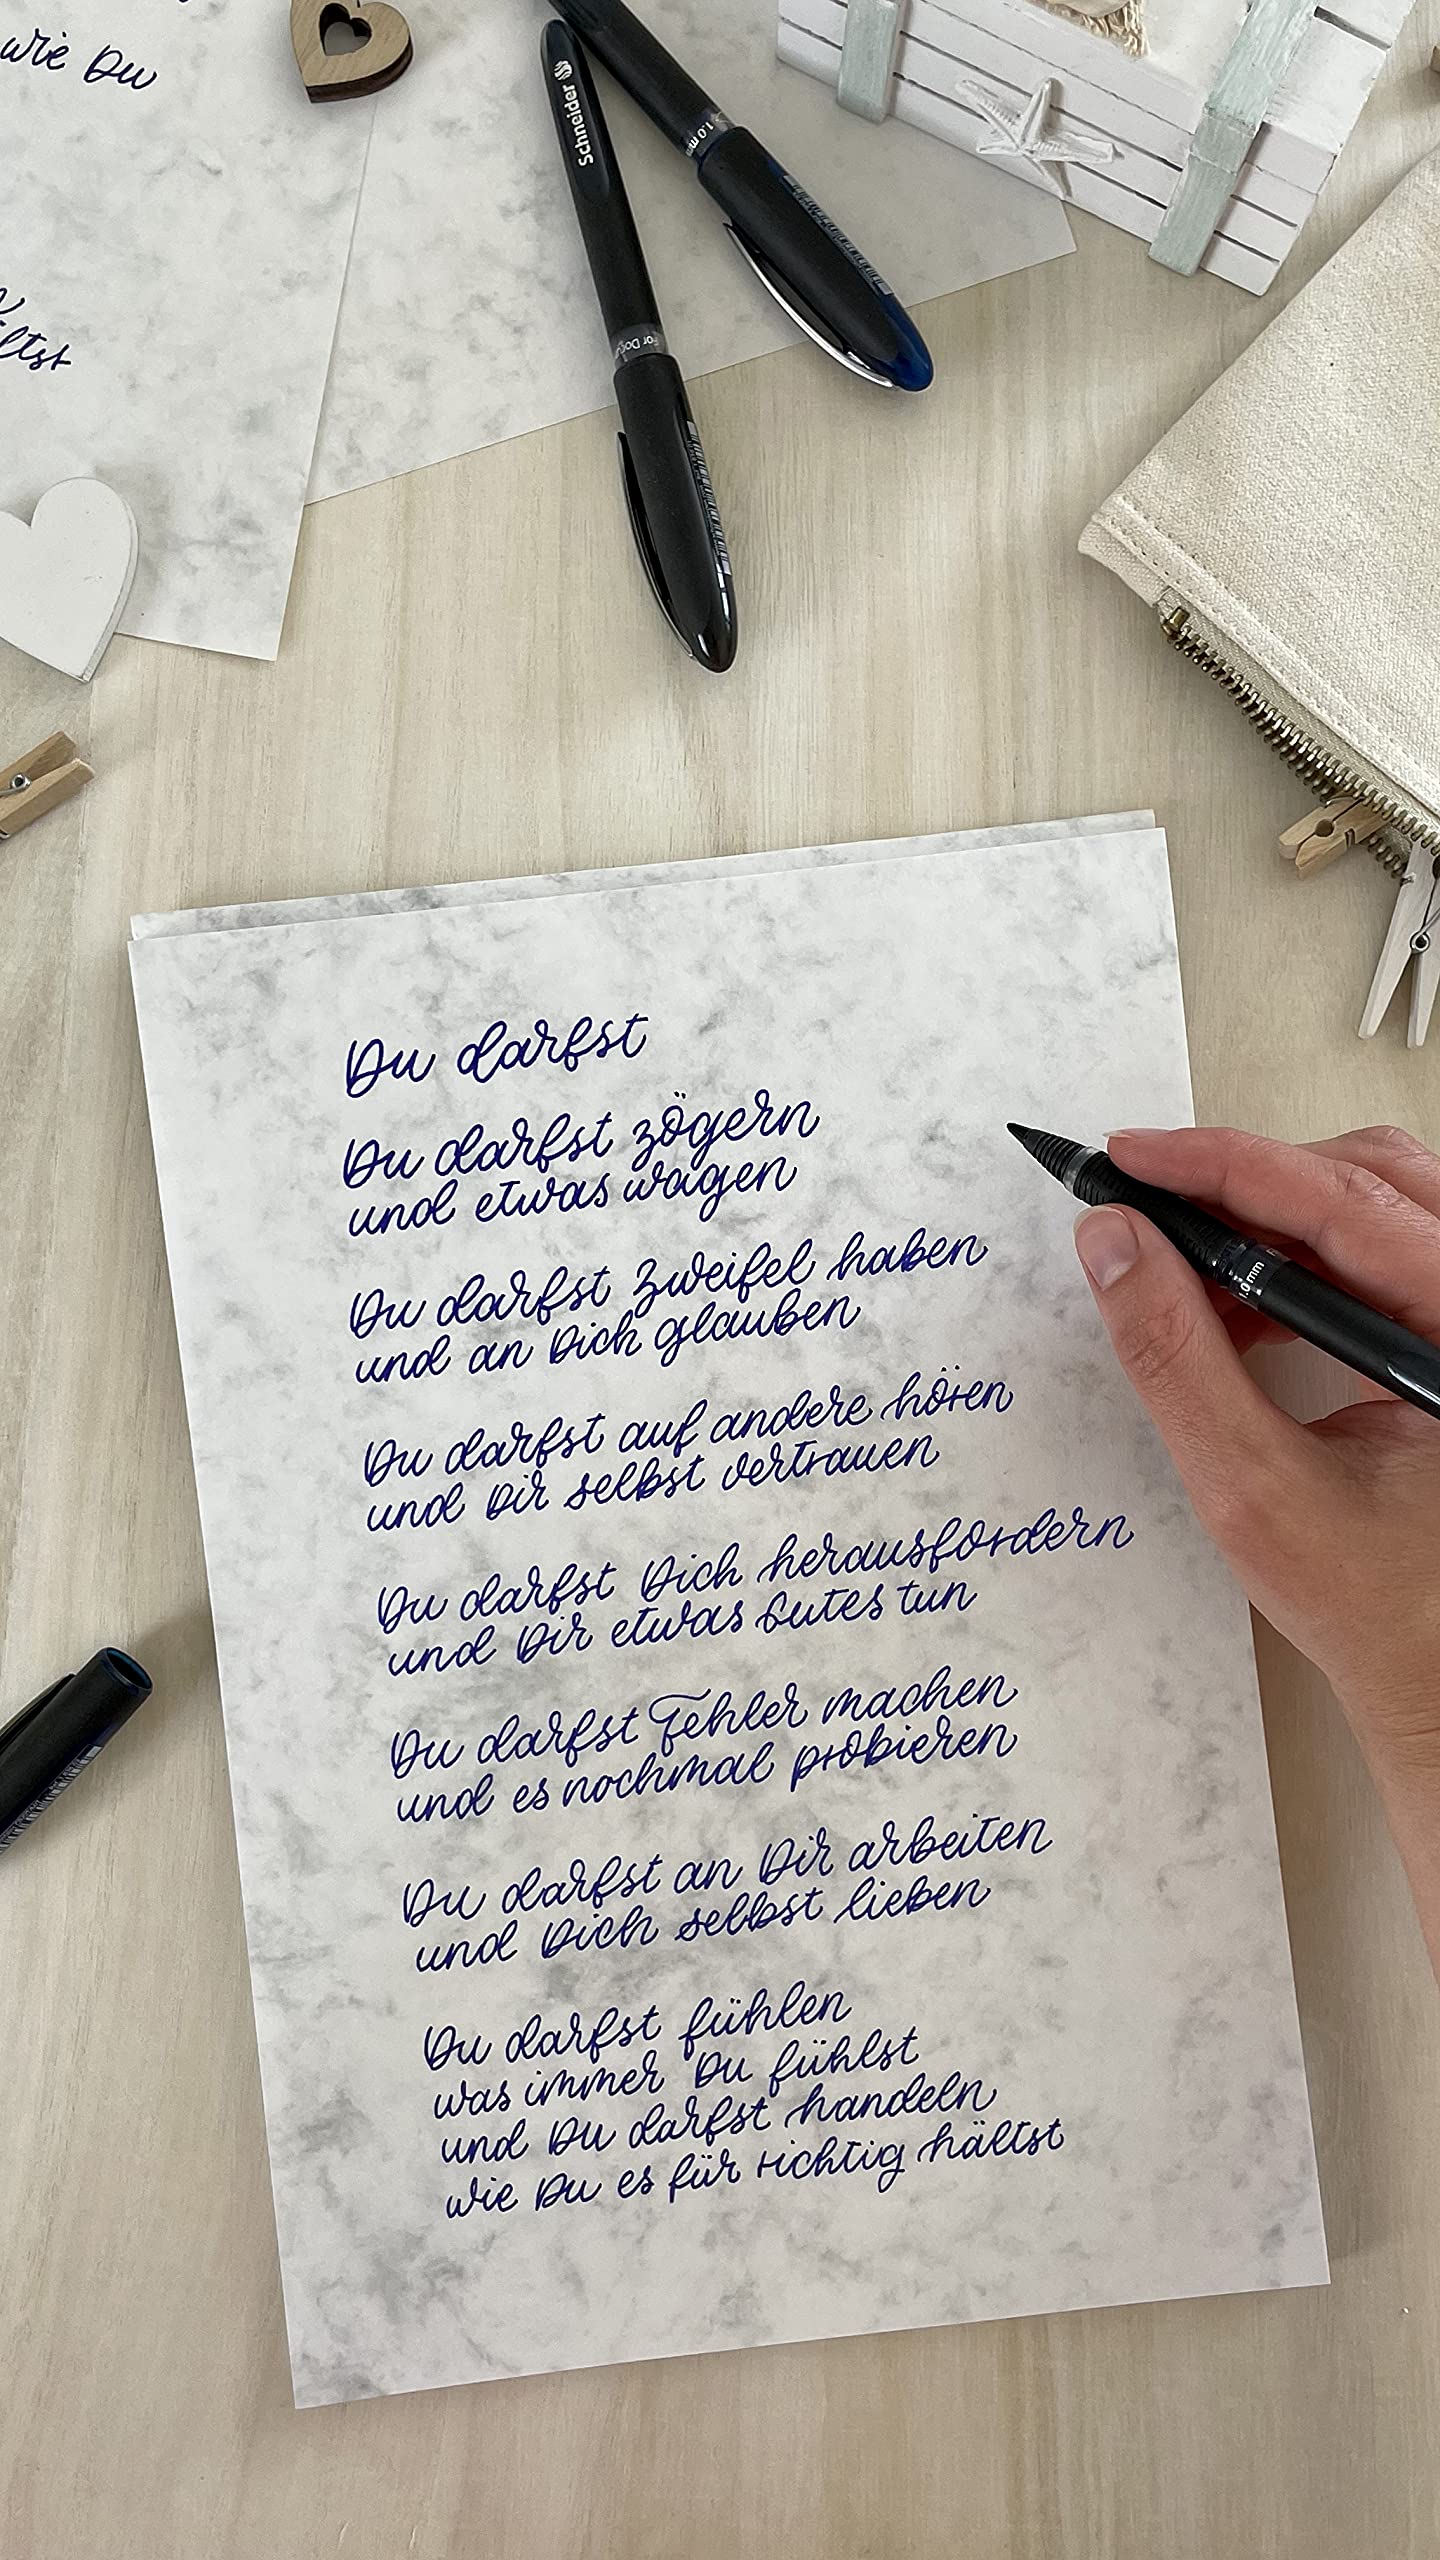 wie Du
Schneider
1.0 mm
Du darfst
Du darfst zögern
und etwas wagen
Du darfst Zweifel haben
und an Dich glauben
Du darfst auf andere hören
und Dir selbst vertrauen
1.0 mm
Du darfst Dich herausfordern
und Dir etwas Gutes tun
Du darfst Fehler machen
und es nochmal probieren
Du darfst an Dir arbeiten
und Dich selbst lieben
Du darfst fühlen
was immer Du fühlst
und Du darfst handeln
wie Du es für richtig hältst